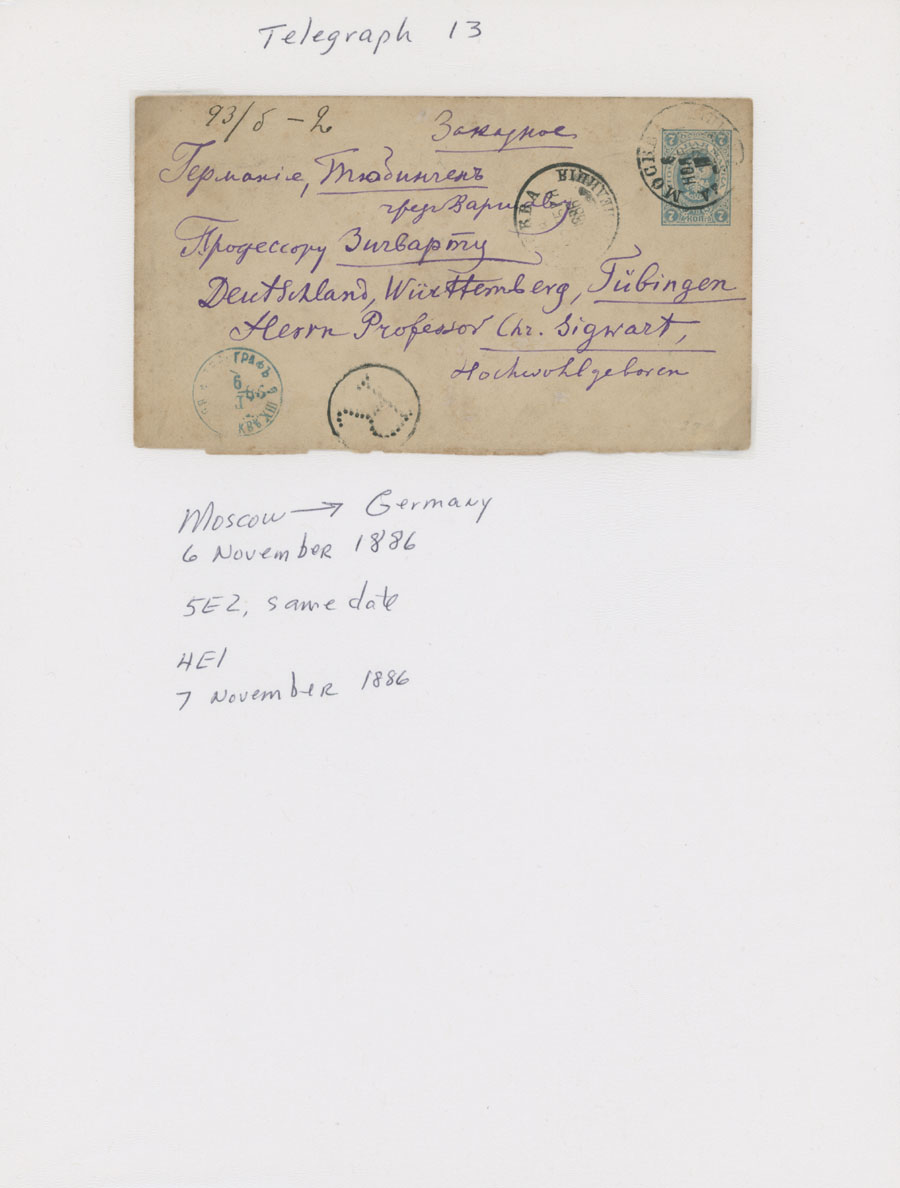 Telegraph 13
93/б - 2
Заказное
Германія, Тюбингенъ
чрезъ Варшаву
Профессору Зигварту
Deutschland, Württemberg, Tübingen
Herrn Professor Chr. Sigwart,
Hochwohlgeboren
МОСКВА
НОЯ
7
7
7
7
КОП.
1886
ГРАФЪ
Moscow → Germany
6 November 1886
5E2, same date
4E1
7 November 1886